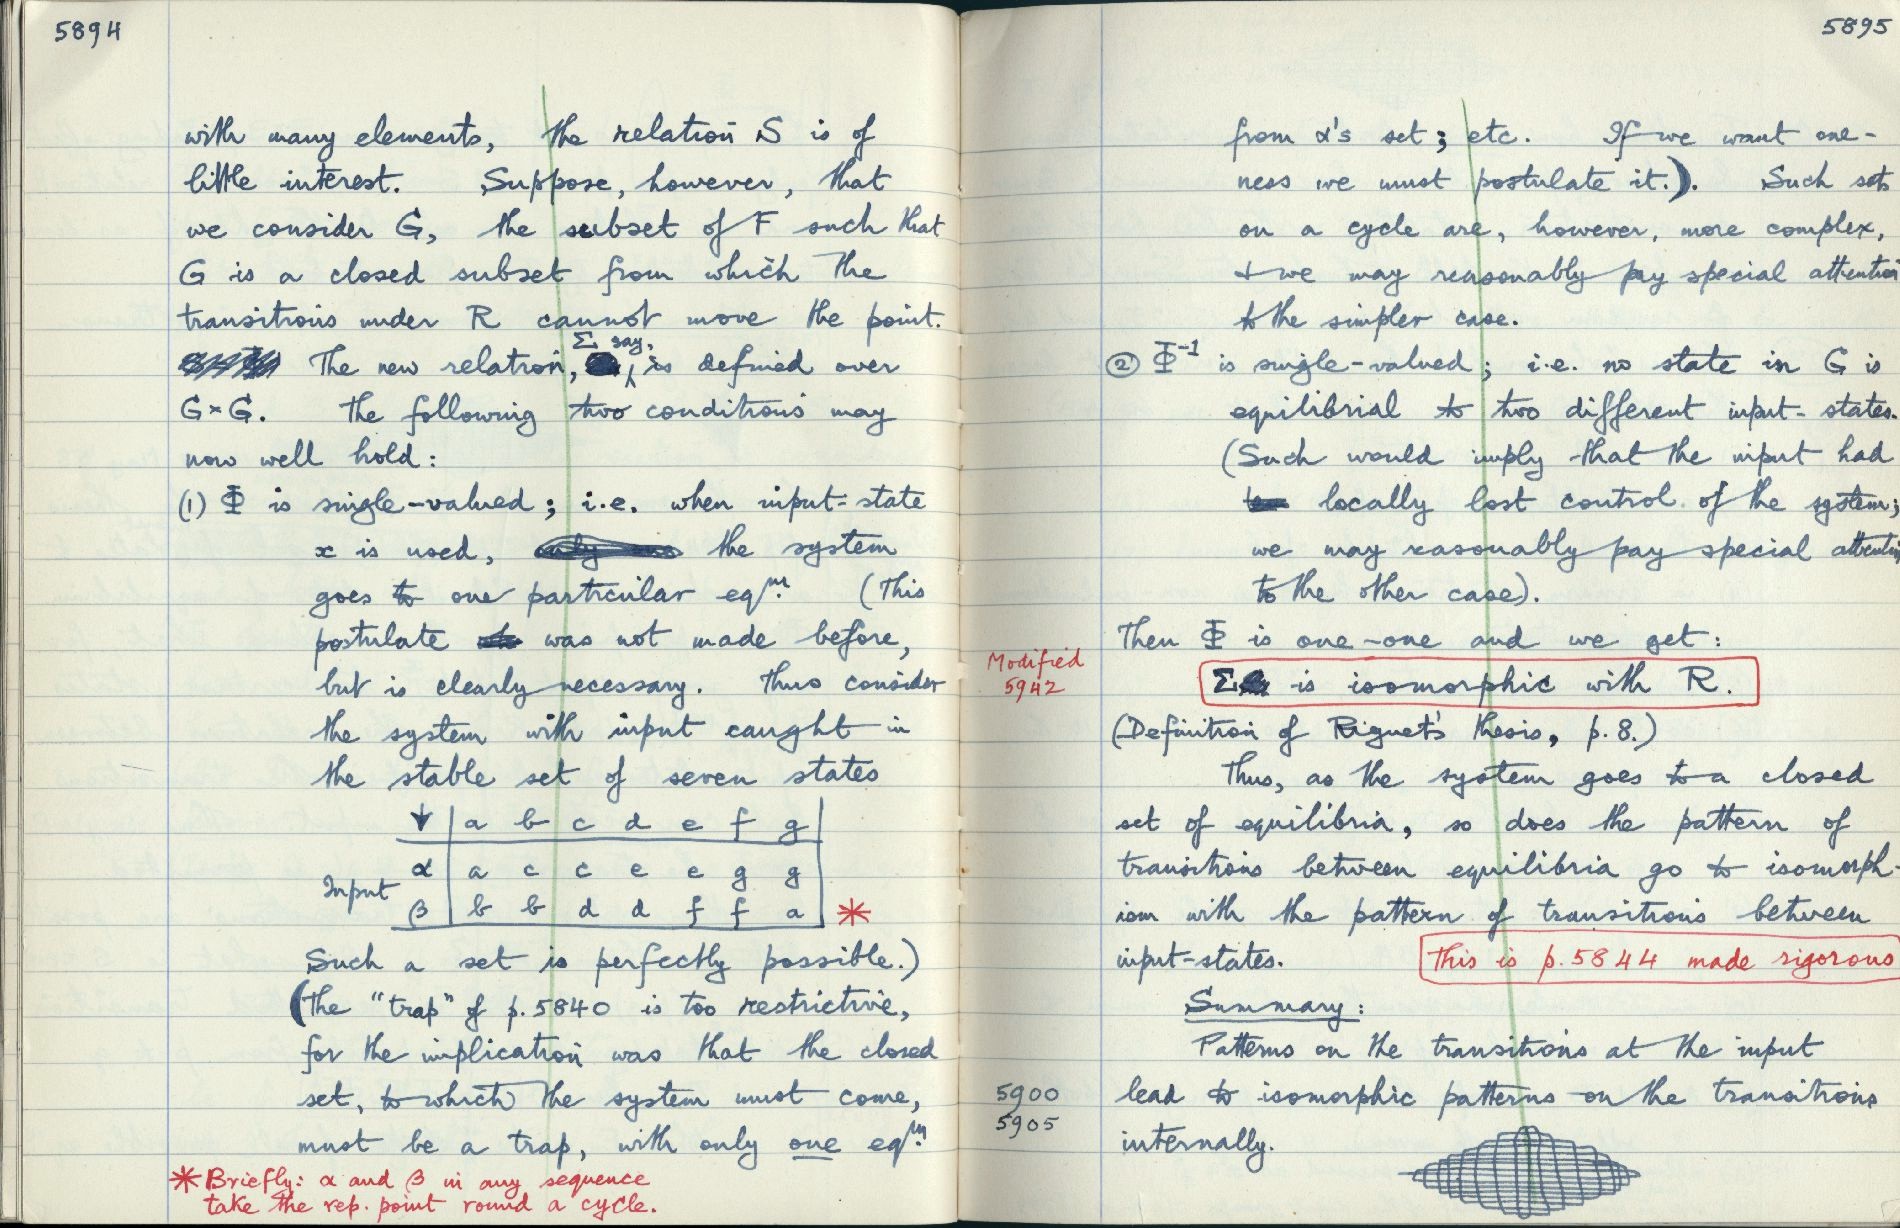 5894
with many elements, the relation S is of
little interest. Suppose, however, that
we consider G, the subset of F such that
G is a closed subset from which the
transitions under R cannot move the point.
The new relation, Σ say, is defined over
G×G. The following two conditions may
now well hold:
(1) Φ is single-valued; i.e. when input-state
x is used, the system
goes to one particular eqm. (This
postulate was not made before,
but is clearly necessary. Thus consider
the system with input caught in
the stable set of seven states
↓ a b c d e f g
α a c c e e g g
Input
β b b d d f f a *
Such a set is perfectly possible.)
(The "trap" of p.5840 is too restrictive,
for the implication was that the closed
set, to which the system must come,
must be a trap, with only one eqm.
* Briefly: α and β in any sequence
take the rep. point round a cycle.
5895
from α's set; etc. If we want one-
ness we must postulate it.). Such sets
on a cycle are, however, more complex,
+ we may reasonably pay special attention
to the simpler case.
② Φ⁻¹ is single-valued; i.e. no state in G is
equilibrial to two different input-states.
(Such would imply that the input had
locally lost control of the system;
we may reasonably pay special attention
to the other case).
Then Φ is one-one and we get:
Modified
5942
Σ is isomorphic with R.
(Definition of Riguet's thesis, p.8.)
Thus, as the system goes to a closed
set of equilibria, so does the pattern of
transitions between equilibria go to isomorph-
ism with the pattern of transitions between
input-states. This is p.5844 made rigorous
Summary:
Patterns on the transitions at the input
5900
lead to isomorphic patterns on the transitions
5905
internally.